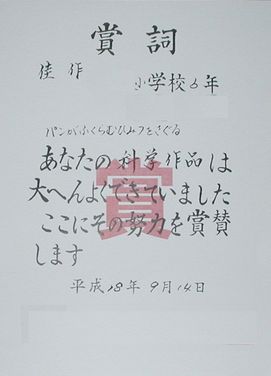 賞詞
佳作
小学校6年
パンがふくらむひみつをさぐる
あなたの科学作品は
大へんよくできていました
ここにその努力を賞賛
します
賞
平成18年9月14日